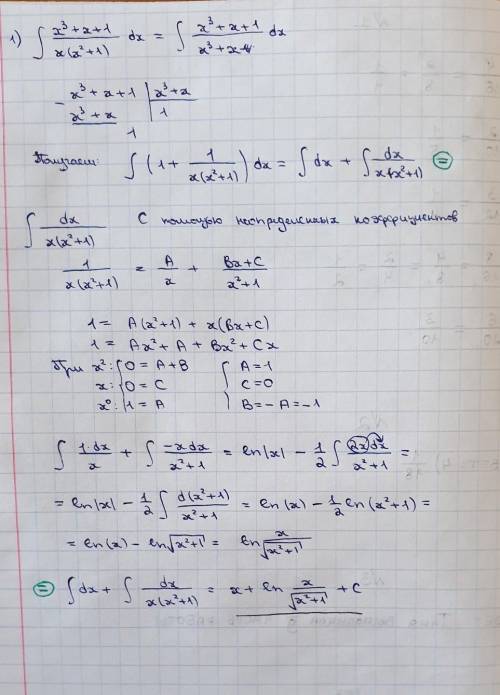 1) ∫ (x³+x+1)/(x(x²+1)) dx = ∫ (x³+x+1)/(x³+x) dx
− x³+x+1 | x³+x
x³+x | 1
1
Получаем: ∫ (1 + 1/(x(x²+1))) dx = ∫ dx + ∫ dx/(x(x²+1)) =
∫ dx/(x(x²+1)) С помощью неопределенных коэффициентов
1/(x(x²+1)) = A/x + (Bx+C)/(x²+1)
1 = A(x²+1) + x(Bx+C)
1 = Ax² + A + Bx² + Cx
При x²: { 0 = A+B { A=1
x: { 0 = C { C=0
x⁰: { 1 = A { B=−A=−1
∫ 1·dx/x + ∫ −x dx/(x²+1) = ln|x| − 1/2 ∫ 2x dx/(x²+1) =
= ln|x| − 1/2 ∫ d(x²+1)/(x²+1) = ln(x) − 1/2 ln(x²+1) =
= ln(x) − ln√(x²+1) = ln x/√(x²+1)
= ∫ dx + ∫ dx/(x(x²+1)) = x + ln x/√(x²+1) + C